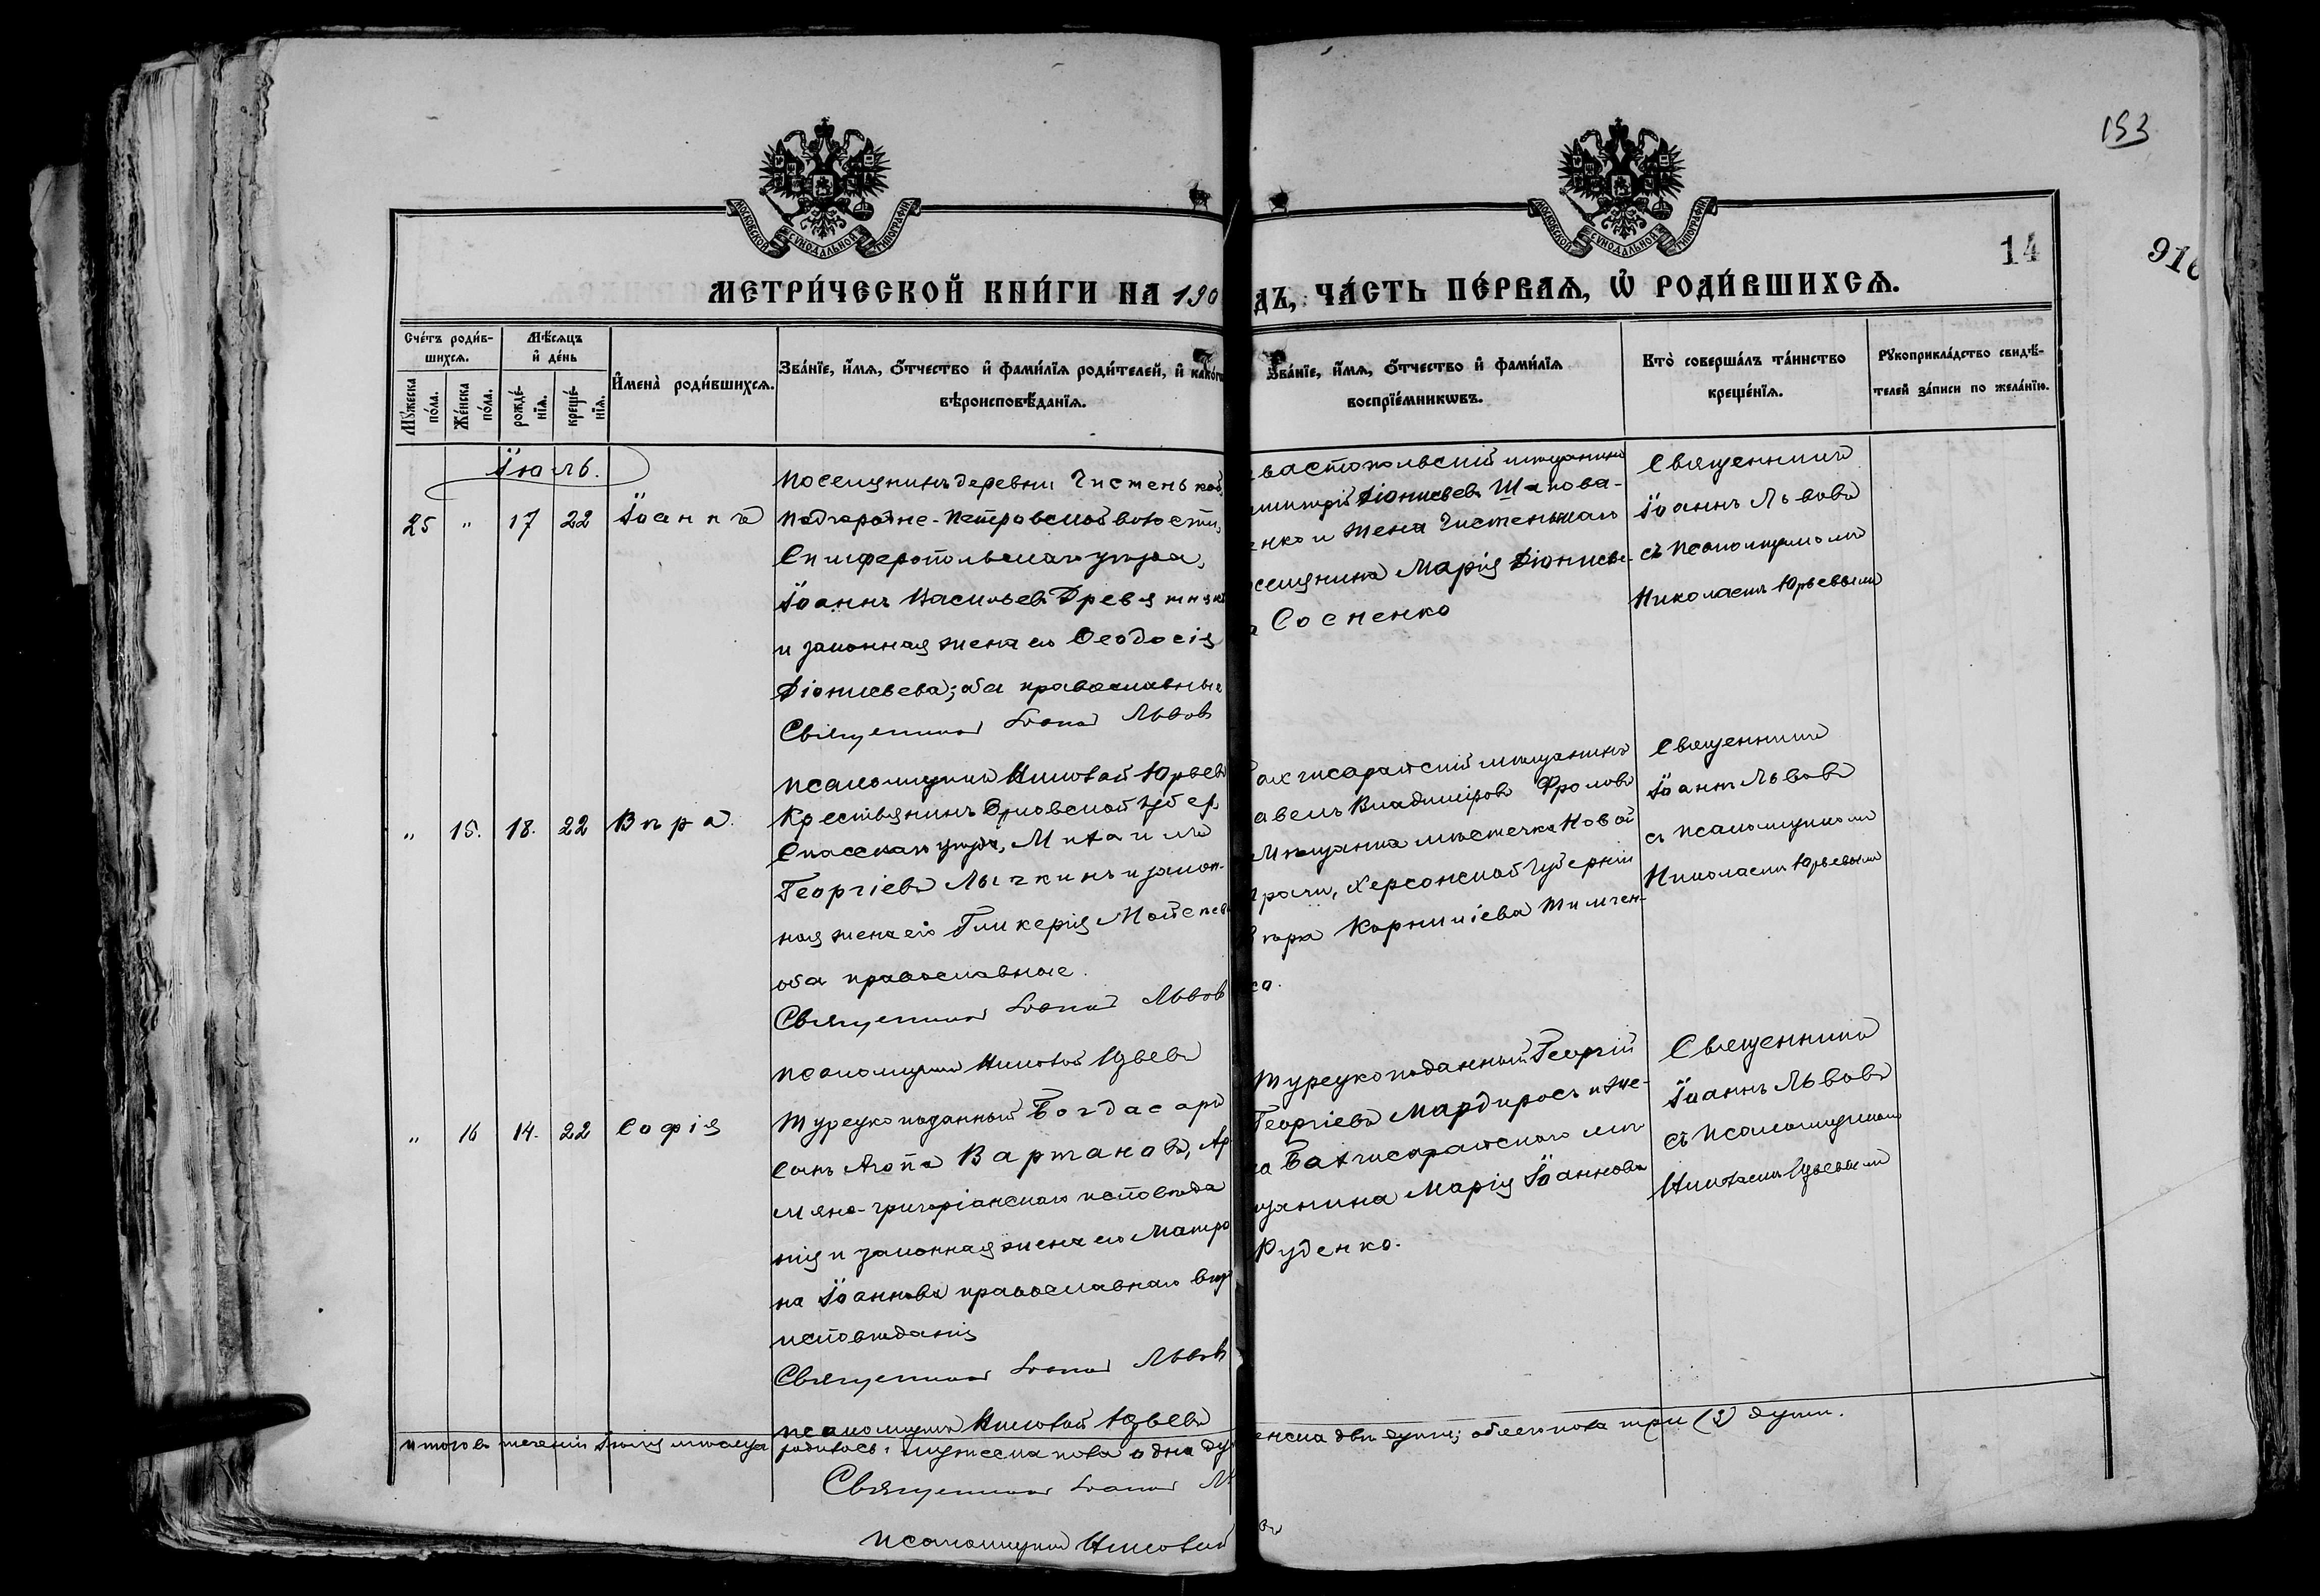 153
14
916
МОСКОВСКОЙ СУНОДАЛЬНОЙ ТИПОГРАФІИ
МОСКОВСКОЙ СУНОДАЛЬНОЙ ТИПОГРАФІИ
МЕТРИ́ЧЕСКОЙ КНИ́ГИ НА 190
дъ, ЧА́СТЬ ПЕ́РВАѦ, Ѡ҆ РОДИ́ВШИХСѦ.
Сче́тъ роди́в-
шихсѧ.
Мꙋ́жеска по́ла.
Же́нска по́ла.
Мѣ́сѧцъ
и҆ де́нь
рожде́-
нїѧ.
креще́-
нїѧ.
И҆мена̀ роди́вшихсѧ.
Зва́нїе, и҆́мѧ, ѻ҆́тчество и҆ фами́лїѧ роди́телей, и҆ како́гѡ
вѣроисповѣ́данїѧ.
Зва́нїе, и҆́мѧ, ѻ҆́тчество и҆ фами́лїѧ
воспрїе́мникѡвъ.
Кто̀ соверша́лъ та́инство
креще́нїѧ.
Рꙋкоприкла́дство свидѣ́-
телей за́писи по жела́нїю.
Іюль.
25 " 17 22 Іоаннъ
Поселянинъ деревни Чистенькой,
Подгородне-Петровской волости,
Симферопольскаго уѣзда,
Іоаннъ Васильевъ
и законная жена его Ѳеодосія
Діонисьева; оба православные
Священникъ Іоаннъ Львовъ
Псаломщикъ Николай Юрьевъ
вастопольскій мѣщанинъ
митрій Діонисьевъ Шапова-
енко и жена Чистенькаго
оселянина Марія Діонисье-
а Сосненко
Священникъ
Іоаннъ Львовъ
съ псаломщикомъ
Николаемъ Юрьевымъ
" 15. 18. 22 Вѣра.
Крестьянинъ Орловской губер.
Спасскаго уѣзда, Михаилъ
Георгіевъ Лычкинъ и закон-
ная жена его Гликерія Моисеев
оба православные.
Священникъ Іоаннъ Львовъ
Псаломщикъ Николай Юрьевъ
ахчисарайскій мѣщанинъ
авелъ Владиміровъ Фроловъ
Мѣщанка мѣстечка Новой
Праги, Херсонской губерніи
Вѣра Корниліева Тимчен-
ко.
Священникъ
Іоаннъ Львовъ
съ псаломщикомъ
Николаемъ Юрьевымъ
" 16 14. 22 Софія
Турецкоподанный Богдасаръ
сынъ Агопа Вартановъ, Ар
мяно-григоріанскаго исповѣда
нія и законная жена его Матро
на Іоаннова православнаго вѣро
исповѣданія
Священникъ Іоаннъ Львовъ
Псаломщикъ Николай Юрьевъ
Турецкоподанный Георгій
Георгіевъ Мардиросъ и же-
на Бахчисарайскаго мѣ
щанина Марія Іоаннова
Руденко.
Священникъ
Іоаннъ Львовъ
съ псаломщикомъ
Николаемъ Юрьевымъ
Итого въ теченіи Іюля мѣсяца родилось: мужеска пола одна ду
енска двѣ души; обоего пола три (3) души.
Священникъ Іоаннъ Л
Псаломщикъ Николай
въ